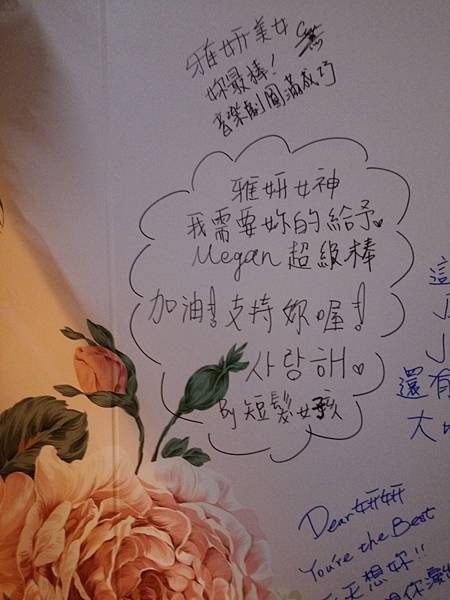 雅妍美女
妳最棒!
音樂劇圓滿成功
雅妍女神
我需要妳的給予
Megan 超級棒
加油!支持妳喔!
사랑해
By 短髮女孩
這
還有
大
Dear妍妍
You're the Best
天天想妳!!